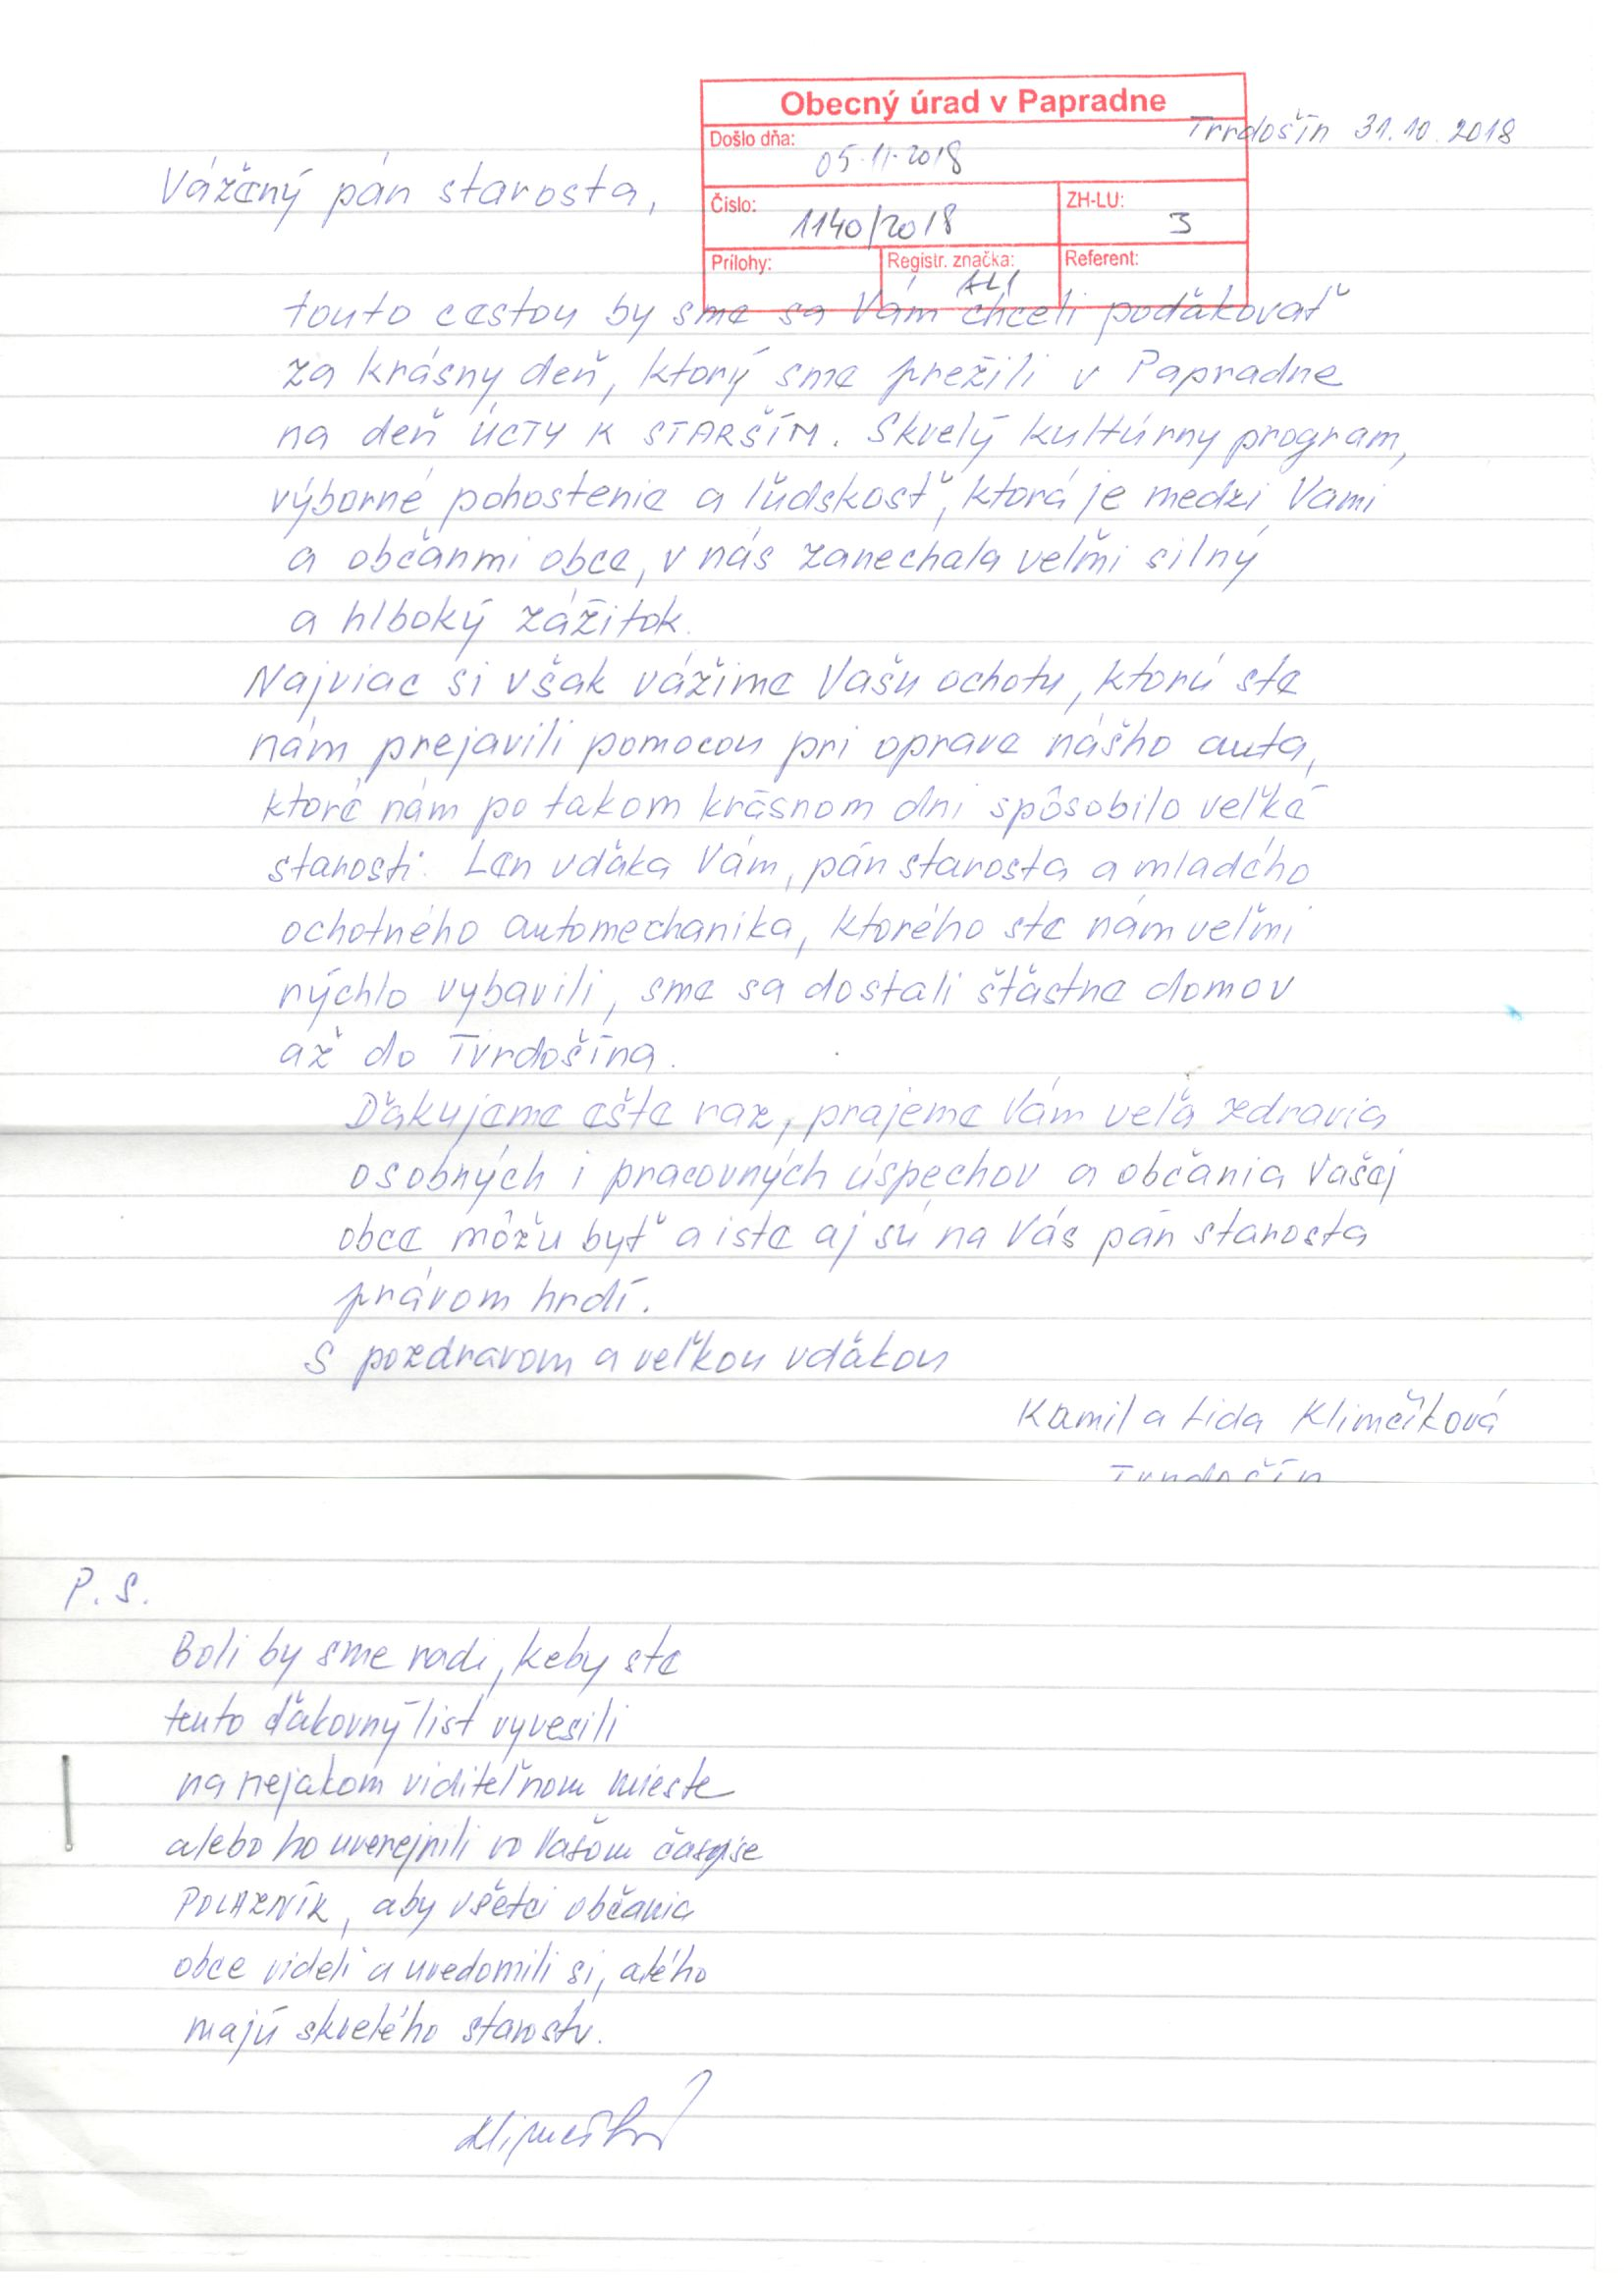 Obecný úrad v Papradne
Tvrdošín 31.10.2018
Došlo dňa:
05.11.2018
Vážený pán starosta,
Číslo:
1140/2018
ZH-LU:
3
Prílohy:
Registr. značka:
AL1
Referent:
touto cestou by sme sa Vám chceli poďakovať
za krásny deň, ktorý sme prežili v Papradne
na deň ÚCTY K STARŠÍM. Skvelý kultúrny program,
výborné pohostenie a ľudskosť, ktorá je medzi Vami
a občanmi obce, v nás zanechala veľmi silný
a hlboký zážitok.
Najviac si však vážime Vašu ochotu, ktorú ste
nám prejavili pomocou pri oprave nášho auta,
ktoré nám po takom krásnom dni spôsobilo veľké
starosti. Len vďaka Vám, pán starosta a mladého
ochotného automechanika, ktorého ste nám veľmi
rýchlo vybavili, sme sa dostali šťastne domov
až do Tvrdošína.
Ďakujeme ešte raz, prajeme Vám veľa zdravia
osobných i pracovných úspechov a občania Vašej
obce môžu byť a iste aj sú na Vás pán starosta
právom hrdí.
S pozdravom a veľkou vďakou
Kamil a Lida Klimčíková
Tvrdošín
P.S.
Boli by sme radi, keby ste
tento ďakovný list vyvesili
na nejakom viditeľnom mieste
alebo ho uverejnili vo Vašom časopise
POLAZNÍK, aby všetci občania
obce videli a uvedomili si, akého
majú skvelého starostu.